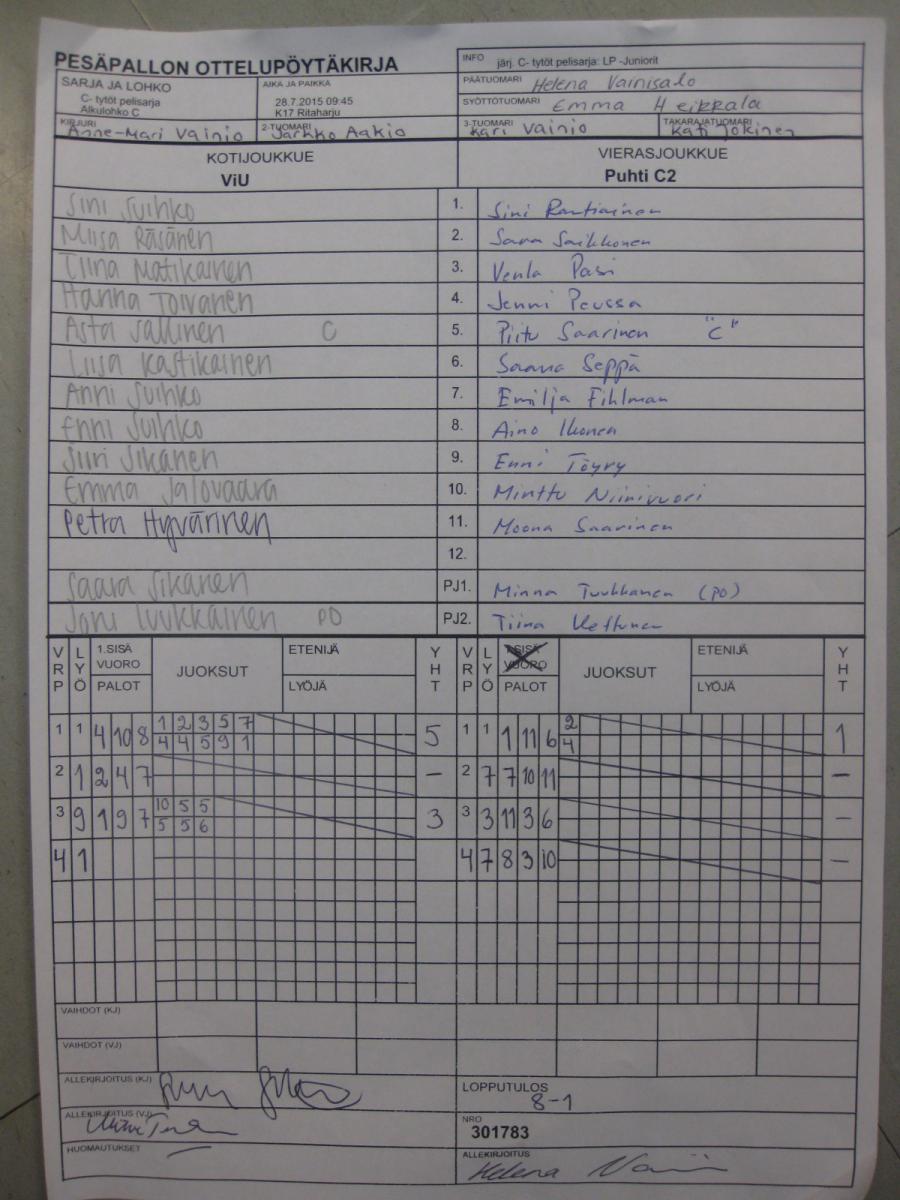 PESÄPALLON OTTELUPÖYTÄKIRJA
INFO järj. C- tytöt pelisarja: LP -Juniorit
SARJA JA LOHKO
C- tytöt pelisarja
Alkulohko C
AIKA JA PAIKKA
28.7.2015 09:45
K17 Ritaharju
PÄÄTUOMARI Helena Vainisalo
SYÖTTÖTUOMARI Emma Heikkala
KIRJURI Anne-Mari Vainio
2-TUOMARI Jarkko Aakio
3-TUOMARI Kari Vainio
TAKARAJATUOMARI Kati Jokinen
KOTIJOUKKUE
ViU
VIERASJOUKKUE
Puhti C2
Sini Suihko 1. Sini Rantiainen
Miisa Räsänen 2. Sara Saikkonen
Tiina Matikainen 3. Venla Pasi
Hanna Toivanen 4. Jenni Peussa
Asta Sallinen C 5. Piitu Saarinen "C"
Liisa Kastikainen 6. Saana Seppä
Anni Suihko 7. Emilja Fihlman
Enni Suihko 8. Aino Ikonen
Siiri Sikanen 9. Enni Töyry
Emma Jalovaara 10. Minttu Niinivuori
Petra Hyvärinen 11. Moona Saarinen
12.
Saara Sikanen PJ1. Minna Tuukkanen (PO)
Jani Luukkainen PO PJ2. Tiina Kettunen
VRP LYÖ 1.SISÄ VUORO PALOT JUOKSUT ETENIJÄ LYÖJÄ YHT VRP LYÖ PALOT JUOKSUT ETENIJÄ LYÖJÄ YHT
1 1 4 10 8 1 2 3 5 7 5 1 1 1 11 6 2 1
4 4 5 9 1 4
2 1 2 4 7 – 2 7 7 10 11 –
3 9 1 9 7 10 5 5 3 3 3 11 3 6 –
5 5 6
4 1 4 7 8 3 10 –
VAIHDOT (KJ)
VAIHDOT (VJ)
ALLEKIRJOITUS (KJ)
LOPPUTULOS
8-1
ALLEKIRJOITUS (VJ)
NRO
301783
HUOMAUTUKSET –
ALLEKIRJOITUS
Helena